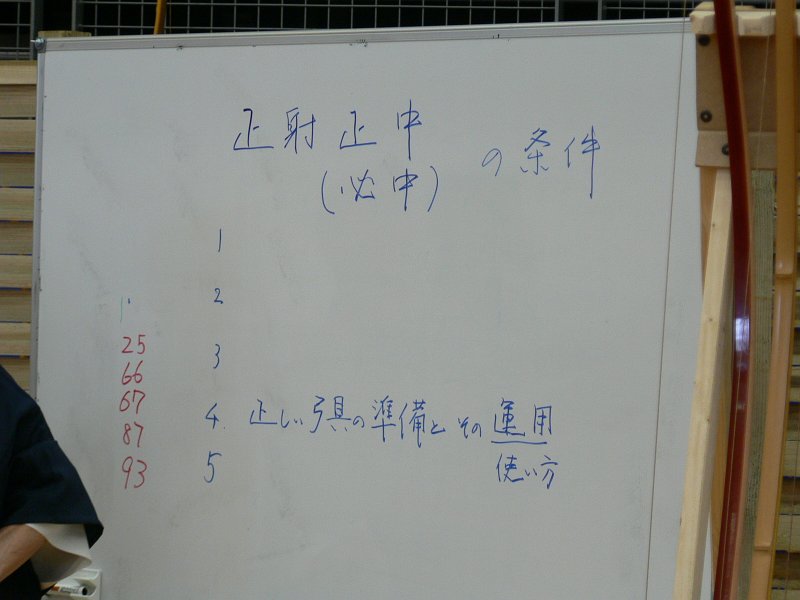 正射正中
(必中)
の条件
1
2
3
4 正しい弓具の準備とその運用
5
使い方
25
66
67
87
93